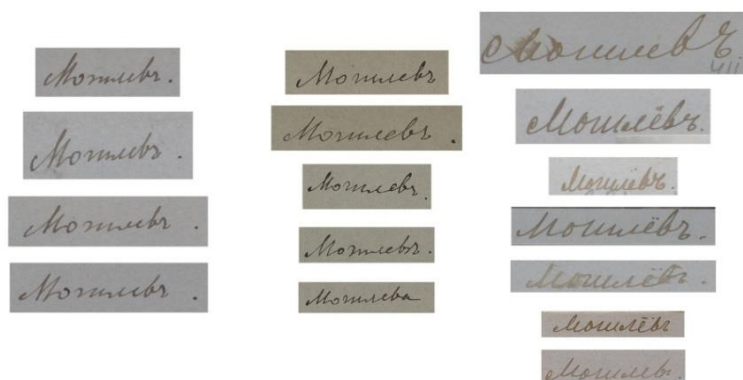 Могилевъ.
Могилевъ.
Могилевъ.
Могилевъ.
Могилевъ
Могилевъ.
Могилевъ.
Могилевъ.
Могилева
Могилевъ.
Могилёвъ.
Могилёвъ.
Могилёвъ.
Могилёвъ.
Могилёвъ
Могилевъ.